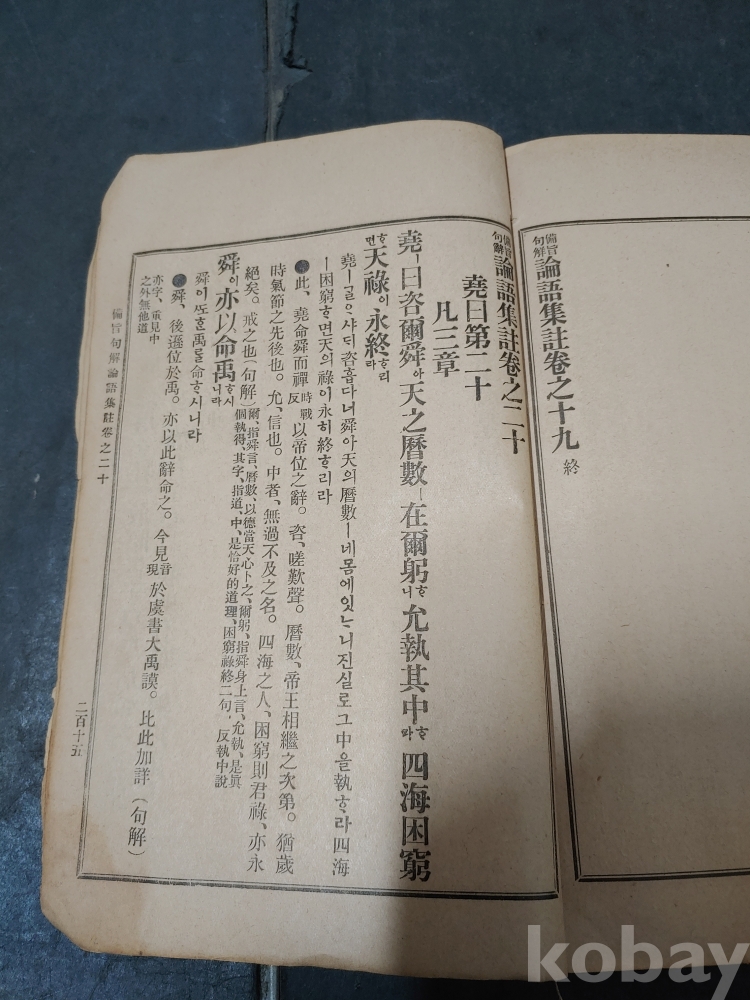 備旨句解 論語集註卷之十九 終
備旨句解 論語集註卷之二十
堯曰第二十
凡三章
堯ㅣ曰咨爾舜아天之曆數ㅣ在爾躬ᄒᆞ니允執其中ᄒᆞ라四海困窮
ᄒᆞ면天祿이永終ᄒᆞ리라
堯ㅣᄀᆞᆯᄋᆞ샤ᄃᆡ咨홉다너舜아天의曆數ㅣ네몸에잇ᄂᆞ니진실로그中을執ᄒᆞ라四海
ㅣ困窮ᄒᆞ면天의祿이永히終ᄒᆞ리라
此、堯命舜而禪時戰反以帝位之辭。咨、嗟歎聲。曆數、帝王相繼之次第。猶歲
時氣節之先後也。允、信也。中者、無過不及之名。四海之人、困窮則君祿、亦永
絕矣。戒之也(句解)爾、指舜言、曆數、以德當天心卜之、爾躬、指舜身上言、允執、是眞
個執得、其字、指道、中、是恰好的道理、困窮祿終二句、反執中說
舜이亦以命禹ᄒᆞ시니라
舜이ᄯᅩᄒᆞᆫ禹를命ᄒᆞ시니라
舜、後遜位於禹。亦以此辭命之。今見音現於虞書大禹謨。比此加詳(句解)
亦字、重見中
之外無他道
備旨句解論語集註卷之二十
二百十五
kobay